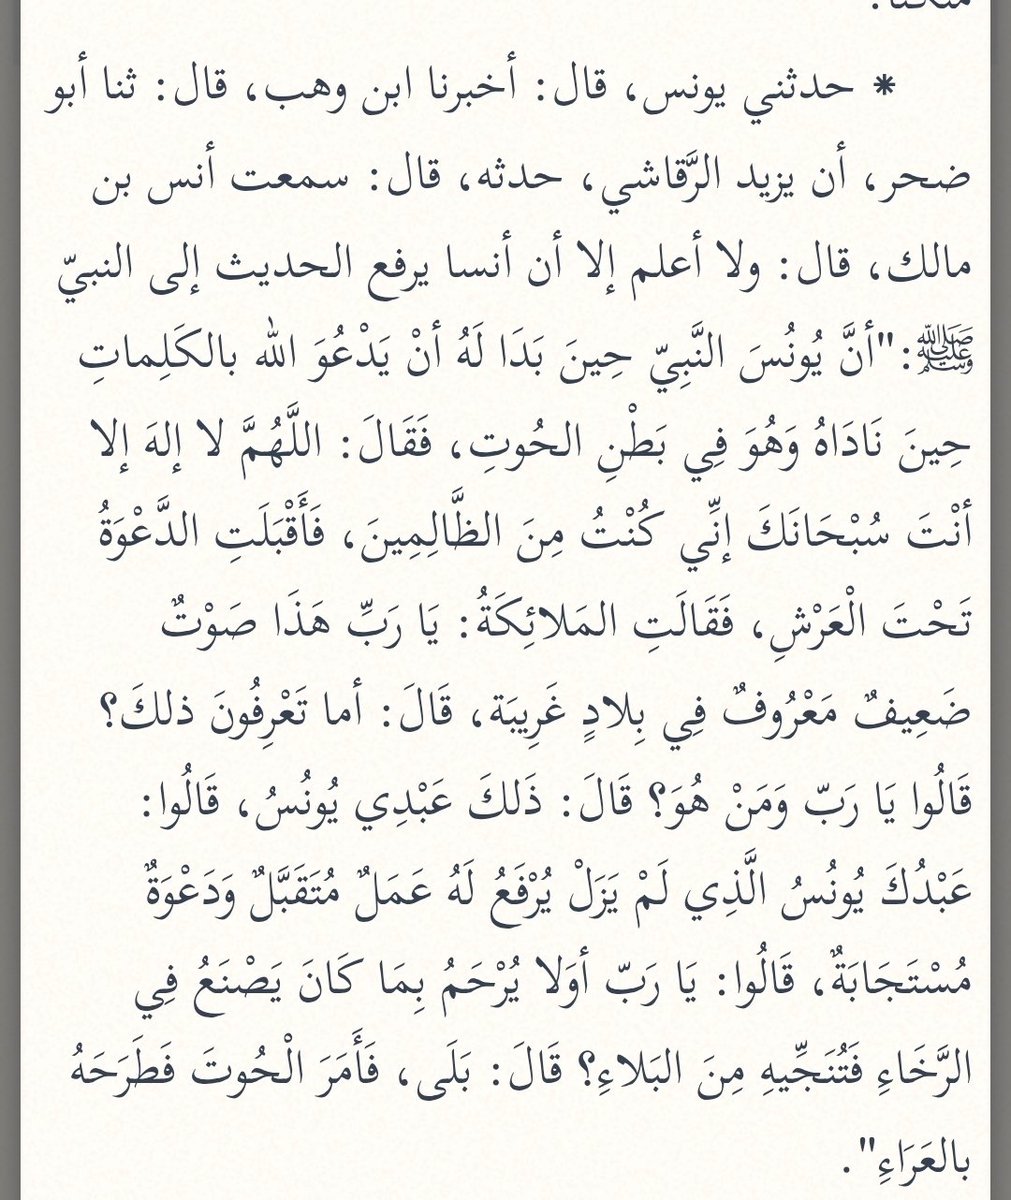 * حدثني يونس، قال: أخبرنا ابن وهب، قال: ثنا أبو
ضحر، أن يزيد الرَّقاشي، حدثه، قال: سمعت أنس بن
مالك، قال: ولا أعلم إلا أن أنسا يرفع الحديث إلى النبيّ
ﷺ:"أنَّ يُونُسَ النَّبِيّ حِينَ بَدَا لَهُ أنْ يَدْعُوَ الله بالكَلِماتِ
حِينَ نَادَاهُ وَهُوَ فِي بَطْنِ الحُوتِ، فَقَالَ: اللَّهُمَّ لا إلهَ إلا
أنْتَ سُبْحَانَكَ إنِّي كُنْتُ مِنَ الظَّالِمِينَ، فَأَقْبَلَتِ الدَّعْوَةُ
تَحْتَ الْعَرْشِ، فَقَالَتِ المَلائِكَةُ: يَا رَبِّ هَذَا صَوْتٌ
ضَعِيفٌ مَعْرُوفٌ فِي بِلادٍ غَرِيبَة، قَالَ: أما تَعْرِفُونَ ذلكَ؟
قَالُوا يَا رَبّ وَمَنْ هُوَ؟ قَالَ: ذَلكَ عَبْدِي يُونُسُ، قَالُوا:
عَبْدُكَ يُونُسُ الَّذِي لَمْ يَزَلْ يُرْفَعُ لَهُ عَمَلٌ مُتَقَبَّلٌ وَدَعْوَةٌ
مُسْتَجَابَةٌ، قَالُوا: يَا رَبّ أوَلا يُرْحَمُ بِمَا كَانَ يَصْنَعُ فِي
الرَّخَاءِ فَتُنَجِّيهِ مِنَ البَلاءِ؟ قَالَ: بَلَى، فَأَمَرَ الْحُوتَ فَطَرَحَهُ
بالعَرَاءِ".